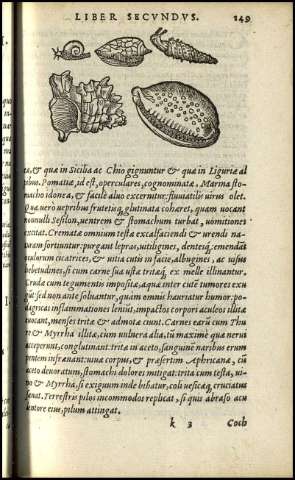 LIBER SECVNDVS. 149
ea, & quæ in Sicilia ac Chio gignuntur & quæ in Liguriæ al
pibus. Pomatiæ, id est, operculares, cognominatæ. Marina sto-
macho idonea, & facile aluo excernitur: fluuiatilis virus olet.
Quæ uero uepribus frutetisq́; glutinata cohæret, quam uocant
nonnulli Sesilon, uentrem & stomachum turbat, uomitiones
excitat. Crematæ omnium testæ excalfaciendi & urendi na-
turam sortiuntur: purgant lepras, uitiligines, dentesq́; emendāt
oculorum cicatrices, & uitia cutis in facie, albugines, ac uisus
hebetudines, si cum carne sua ustæ tritæq́; ex melle illinantur.
Crudæ cum tegumentis impositæ, aquã inter cutẽ tumores exu
gũt: sed non ante soluantur, quam omnis hauriatur humor. po-
dagricas inflammationes leniũt, impactos corpori aculeos illitæ
euocant, mulieris tritæ & admotæ cient. Carnes earũ cum Thu
re & Myrrha illitæ, cùm uulnera alia, tũ maximè quæ nerui
acceperunt, conglutinant: tritæ in aceto, sanguinẽ naribus erum
pentem infrænant: uiua corpus, & præsertim Aphricanæ, cũ
aceto deuoratum, stomachi dolores mitigat: trita cum testa, ui-
no & Myrrha, si exiguum inde bibatur, coli uesicæq́; cruciatus
sanat. Terrestris pilos incommodos replicat, si quis abraso acu
mucore eius, pilum attingat.
k 3 Coch